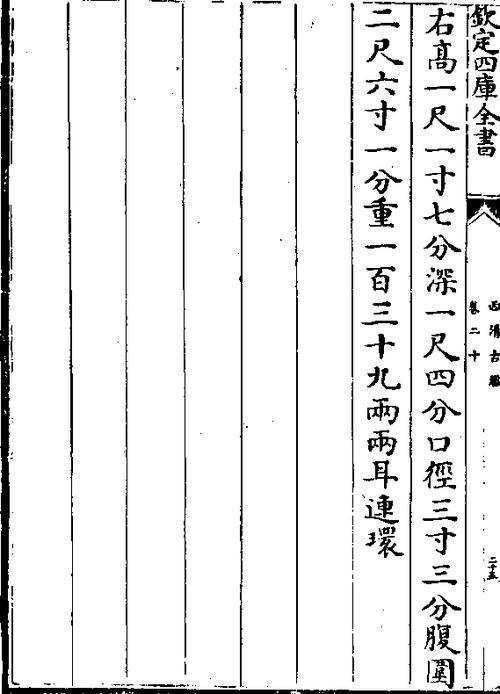 欽定四庫全書
西清古鑑
卷二十
二十五
右高一尺一寸七分深一尺四分口徑三寸三分腹圍
二尺六寸一分重一百三十九兩兩耳連環